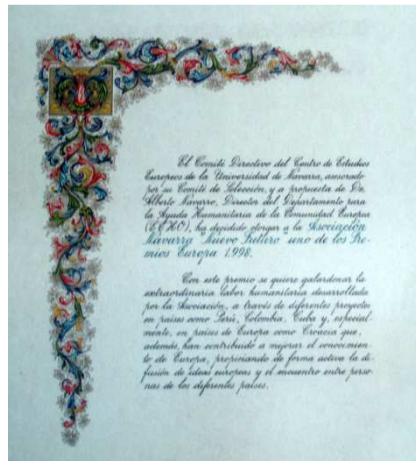 El Comité Directivo del Centro de Estudios
Europeos de la Universidad de Navarra, asesorado
por su Comité de Selección, y a propuesta de Dn.
Alberto Navarro, Director del Departamento para
la Ayuda Humanitaria de la Comunidad Europea
(ECHO), ha decidido otorgar a la Asociación
Navarra Nuevo Futuro uno de los Pre-
mios Europa 1.998.
Con este premio se quiere galardonar la
extraordinaria labor humanitaria desarrollada
por la Asociación, a través de diferentes proyectos
en países como Perú, Colombia, Cuba y, especial-
mente, en países de Europa como Croacia que,
además, han contribuido a mejorar el conocimien-
to de Europa, propiciando de forma activa la di-
fusión de ideas europeas y el encuentro entre perso-
nas de los diferentes países.